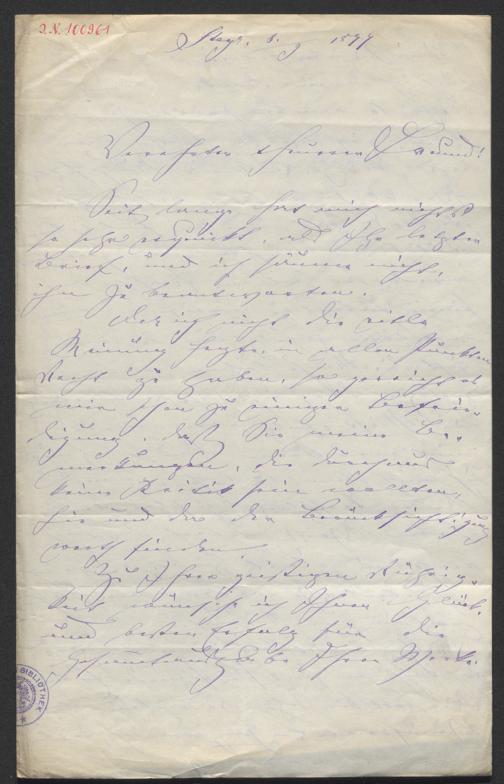 J.N. 100961
Steyr, 8. 9 1877
Verehrter theurer Freund!
Seit lange hat mich nichts
so sehr erquickt, als Ihr letzter
Brief, und ich säume nicht,
ihn zu beantworten.
ich nicht die eitle
Meinung hegte, in allen Punkten
Recht zu haben, so gereicht es
mir schon zu einiger Befrie-
digung, daß Sie meine Be-
merkungen, die durchaus
keine Kritik sein wollten,
hie und da der Berücksichtigung
werth finden.
Zu Ihrer geistigen
wünsche ich Ihnen Glück,
und besten Erfolg für die
Gesammtausgabe Ihrer Werke.
BIBLIOTHEK